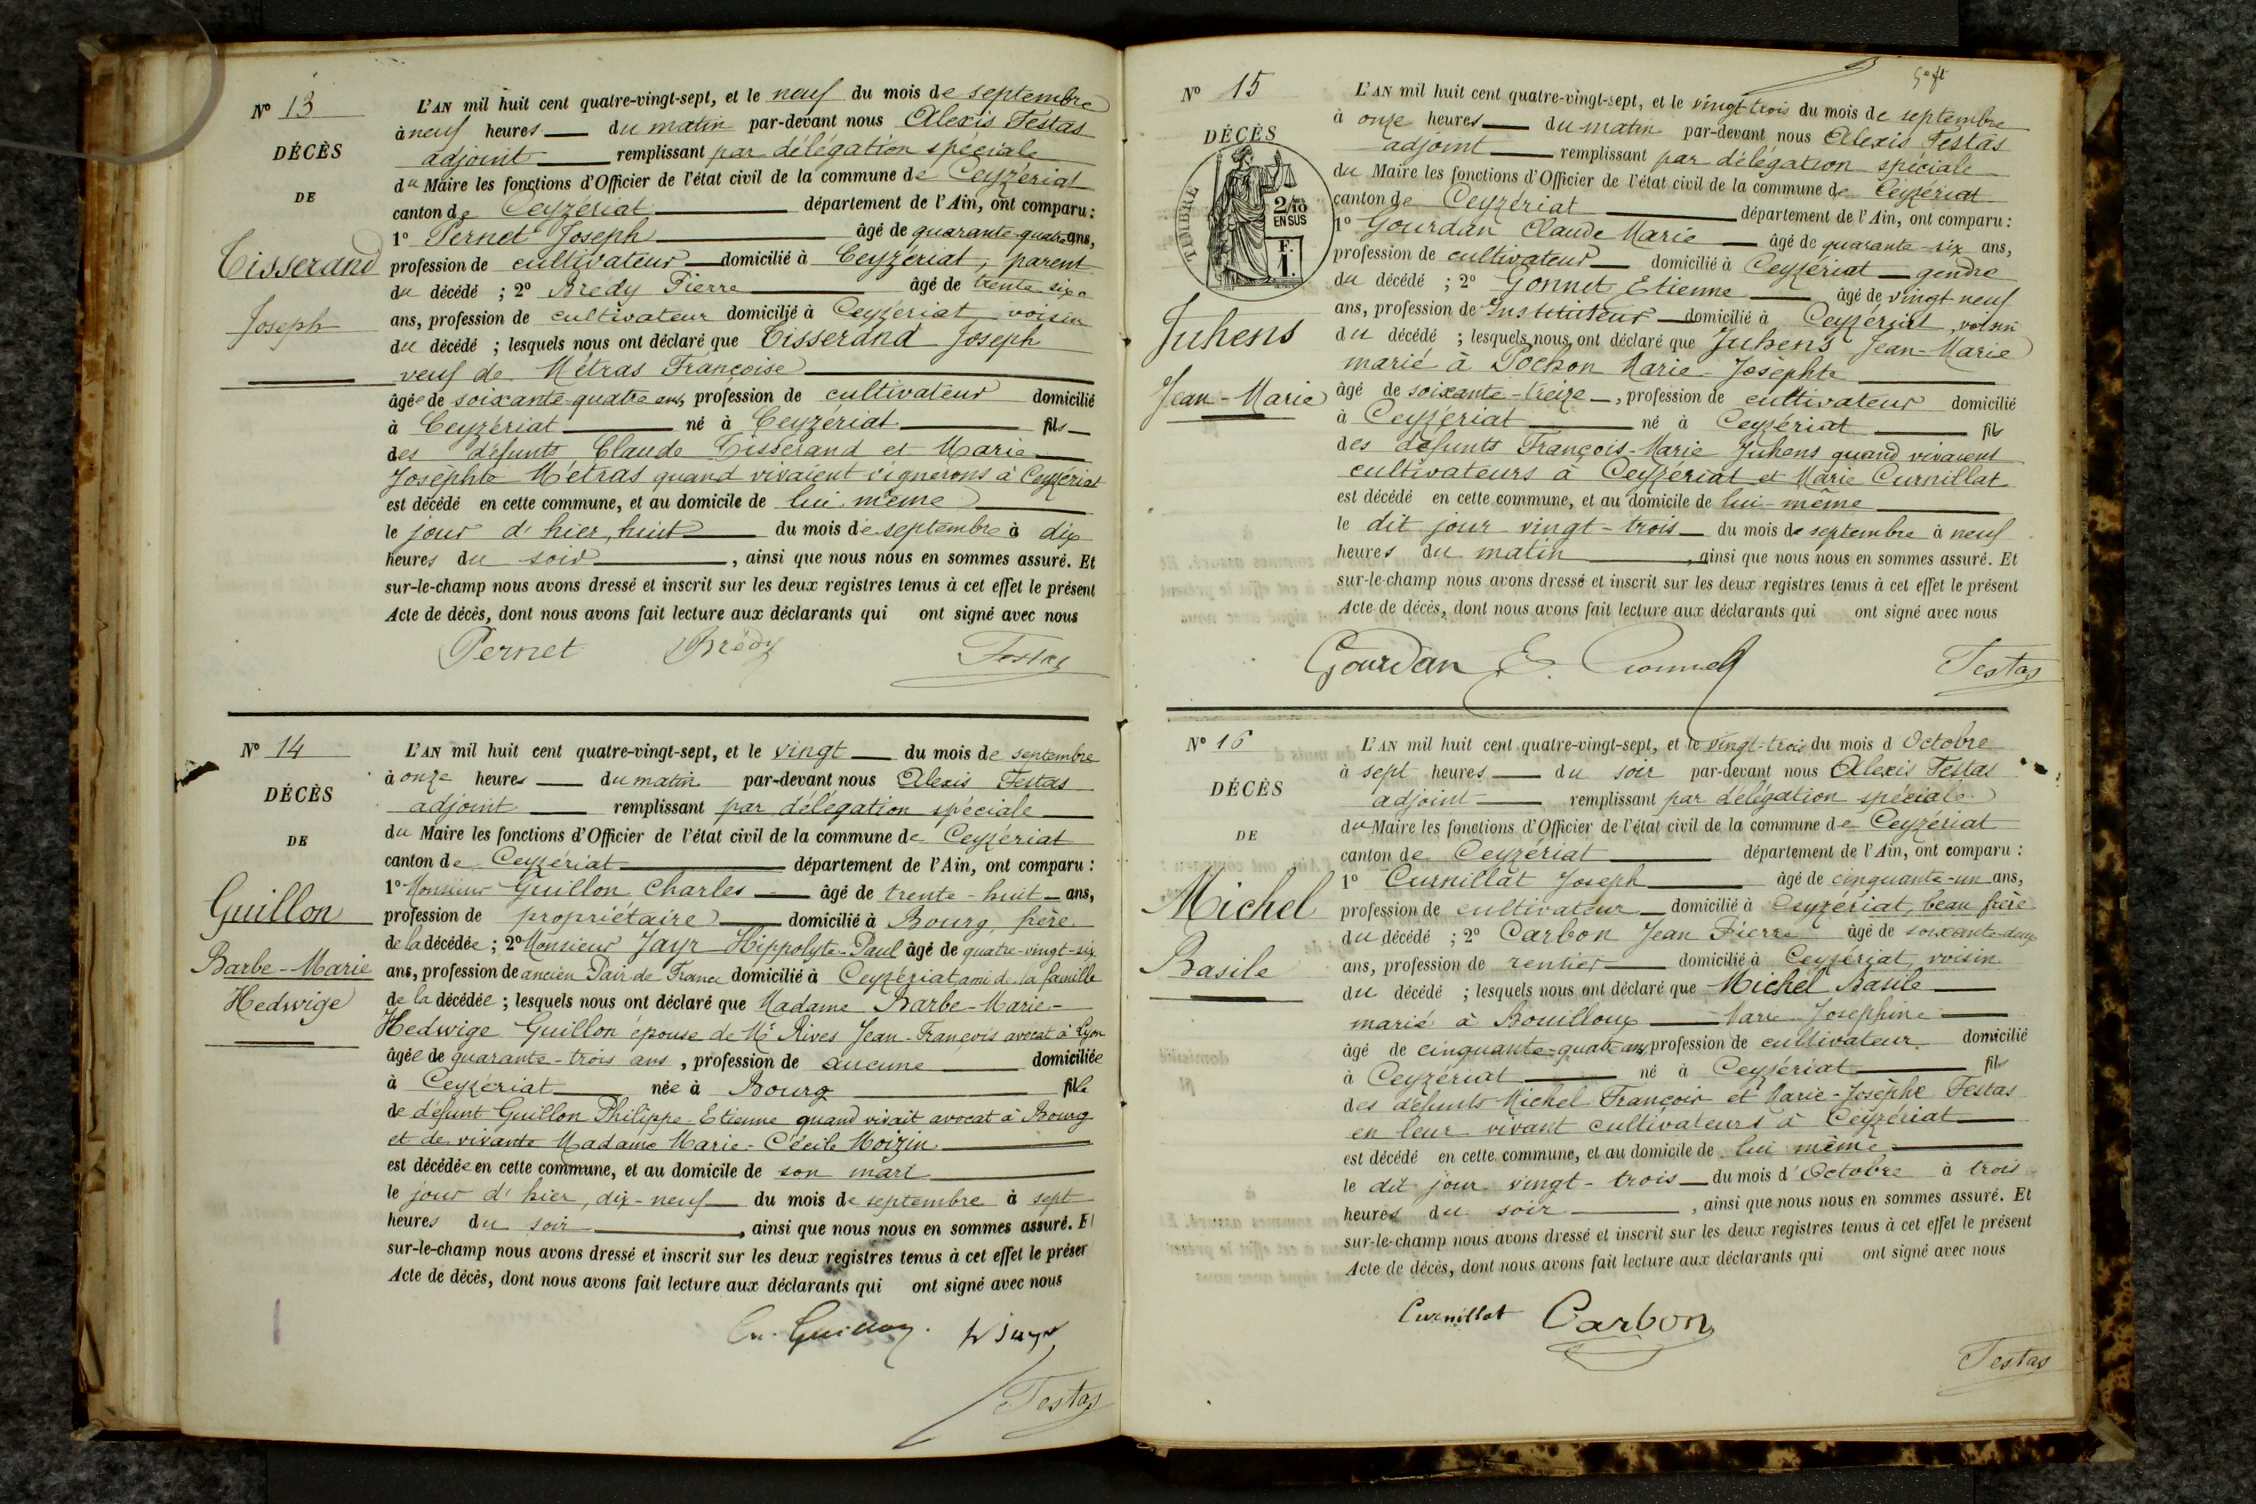 Nº 13
DÉCÈS
DE
Tisserand
Joseph
L'AN mil huit cent quatre-vingt-sept, et le neuf du mois de septembre
à neuf heures du matin par-devant nous Alexis Festas
adjoint remplissant par délégation spéciale
du Maire les fonctions d'Officier de l'état civil de la commune de Ceyzériat
canton de Ceyzériat département de l'Ain, ont comparu :
1º Pernet Joseph âgé de quarante-quatre ans,
profession de cultivateur domicilié à Ceyzériat, parent
du décédé ; 2º Brédy Pierre âgé de trente six
ans, profession de cultivateur domicilié à Ceyzériat, voisin
du décédé ; lesquels nous ont déclaré que Tisserand Joseph
veuf de Métras Françoise
âgé de soixante-quatre ans, profession de cultivateur domicilié
à Ceyzériat né à Ceyzériat fils
des défunts Claude Tisserand et Marie
Josephte Métras quand vivaient vignerons à Ceyzériat
est décédé en cette commune, et au domicile de lui même
le jour d'hier, huit du mois de septembre à dix
heures du soir, ainsi que nous nous en sommes assuré. Et
sur-le-champ nous avons dressé et inscrit sur les deux registres tenus à cet effet le présent
Acte de décès, dont nous avons fait lecture aux déclarants qui ont signé avec nous
Pernet Brédy Festas
Nº 14
DÉCÈS
DE
Guillon
Barbe-Marie
Hedwige
L'AN mil huit cent quatre-vingt-sept, et le vingt du mois de septembre
à onze heures du matin par-devant nous Alexis Festas
adjoint remplissant par délégation spéciale
du Maire les fonctions d'Officier de l'état civil de la commune de Ceyzériat
canton de Ceyzériat département de l'Ain, ont comparu :
1º Monsieur Guillon Charles âgé de trente-huit ans,
profession de propriétaire domicilié à Bourg, frère
de la décédée ; 2º Monsieur Jayr Hippolyte-Paul âgé de quatre-vingt-six
ans, profession de ancien Pair de France domicilié à Ceyzériat, ami d. la famille
de la décédée ; lesquels nous ont déclaré que Madame Barbe-Marie-
Hedwige Guillon épouse de Mr Rives Jean-François avocat à Lyon
âgée de quarante-trois ans, profession de aucune domiciliée
à Ceyzériat née à Bourg fille
de défunt Guillon Philippe-Etienne quand vivait avocat à Bourg
et de vivante Madame Marie-Cécile Moizin
est décédée en cette commune, et au domicile de son mari
le jour d'hier, dix-neuf du mois de septembre à sept
heures du soir, ainsi que nous nous en sommes assuré. Et
sur-le-champ nous avons dressé et inscrit sur les deux registres tenus à cet effet le présen
Acte de décès, dont nous avons fait lecture aux déclarants qui ont signé avec nous
Ch. Guillon. H Jayr
Festas
Nº 15
DÉCÈS
TIMBRE
2/10
EN SUS
F.
1.
Juhens
Jean-Marie
L'AN mil huit cent quatre-vingt-sept, et le vingt-trois du mois de septembre
à onze heures du matin par-devant nous Alexis Festas
adjoint remplissant par délégation spéciale
du Maire les fonctions d'Officier de l'état civil de la commune de Ceyzériat
canton de Ceyzériat département de l'Ain, ont comparu :
1º Gourdan Claude Marie âgé de quarante-six ans,
profession de cultivateur domicilié à Ceyzériat gendre
du décédé ; 2º Gonnet Etienne âgé de vingt neuf
ans, profession de Instituteur domicilié à Ceyzériat, voisin
du décédé ; lesquels nous ont déclaré que Juhens Jean-Marie
marié à Pochon Marie-Josephte
âgé de soixante-treize, profession de cultivateur domicilié
à Ceyzériat né à Ceyzériat fils
des défunts François-Marie Juhens quand vivaient
cultivateurs à Ceyzériat et Marie Curnillat
est décédé en cette commune, et au domicile de lui-même
le dit jour vingt-trois du mois de septembre à neuf
heures du matin, ainsi que nous nous en sommes assuré. Et
sur-le-champ nous avons dressé et inscrit sur les deux registres tenus à cet effet le présent
Acte de décès, dont nous avons fait lecture aux déclarants qui ont signé avec nous
Gourdan E. Gonnet Festas
Nº 16
DÉCÈS
DE
Michel
Basile
L'AN mil huit cent quatre-vingt-sept, et le vingt-trois du mois d Octobre
à sept heures du soir par-devant nous Alexis Festas
adjoint remplissant par délégation spéciale
du Maire les fonctions d'Officier de l'état civil de la commune de Ceyzériat
canton de Ceyzériat département de l'Ain, ont comparu :
1º Curnillat Joseph âgé de cinquante-un ans,
profession de cultivateur domicilié à Ceyzériat, beau frère
du décédé ; 2º Carbon Jean Pierre âgé de soixante-deux
ans, profession de rentier domicilié à Ceyzériat, voisin
du décédé ; lesquels nous ont déclaré que Michel Basile
marié à Bouilloux Marie Josephine
âgé de cinquante-quatre ans, profession de cultivateur domicilié
à Ceyzériat né à Ceyzériat fils
des défunts Michel François et Marie-Josèphe Festas
en leur vivant cultivateurs à Ceyzériat
est décédé en cette commune, et au domicile de lui même
le dit jour vingt-trois du mois d'Octobre à trois
heures du soir, ainsi que nous nous en sommes assuré. Et
sur-le-champ nous avons dressé et inscrit sur les deux registres tenus à cet effet le présent
Acte de décès, dont nous avons fait lecture aux déclarants qui ont signé avec nous
Curnillat Carbon
Festas